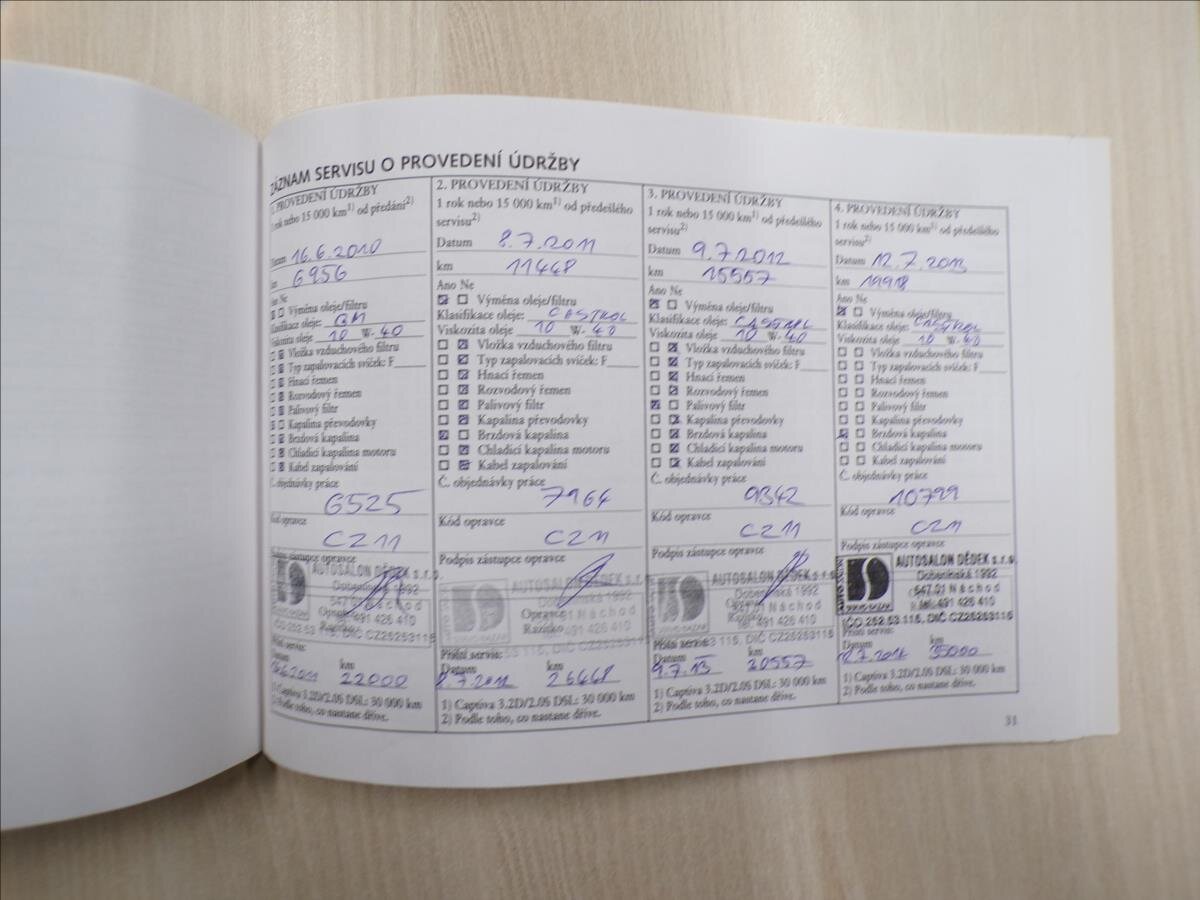 ZÁZNAM SERVISU O PROVEDENÍ ÚDRŽBY
1. PROVEDENÍ ÚDRŽBY
1 rok nebo 15 000 km1) od předání2)
Datum 16.6.2010
km 6956
Ano Ne
Výměna oleje/filtru
Klasifikace oleje: GM
Viskozita oleje 10 W- 40
Vložka vzduchového filtru
Typ zapalovacích svíček: F
Hnací řemen
Rozvodový řemen
Palivový filtr
Kapalina převodovky
Brzdová kapalina
Chladicí kapalina motoru
Kabel zapalování
Č. objednávky práce
6525
Kód opravce
CZ11
Podpis zástupce opravce
AUTOSALON DĚDEK s.r.o.
Dobenínská 1992
547 01 Náchod
tel: 491 426 410
IČO 252 53 115, DIČ CZ25253115
Příští servis:
Datum km
22000
1) Captiva 3.2D/2.0S DSL: 30 000 km
2) Podle toho, co nastane dříve.
2. PROVEDENÍ ÚDRŽBY
1 rok nebo 15 000 km1) od předešlého
servisu2)
Datum 8.7.2011
km 11448
Ano Ne
Výměna oleje/filtru
Klasifikace oleje: CASTROL
Viskozita oleje 10 W- 40
Vložka vzduchového filtru
Typ zapalovacích svíček: F
Hnací řemen
Rozvodový řemen
Palivový filtr
Kapalina převodovky
Brzdová kapalina
Chladicí kapalina motoru
Kabel zapalování
Č. objednávky práce
7964
Kód opravce
CZ11
Podpis zástupce opravce
AUTOSALON DĚDEK s.r.o.
Dobenínská 1992
547 01 Náchod
Opravce
Razítko tel: 491 426 410
IČO 252 53 115, DIČ CZ25253115
Příští servis:
Datum km
8.7.2012 26448
1) Captiva 3.2D/2.0S DSL: 30 000 km
2) Podle toho, co nastane dříve.
3. PROVEDENÍ ÚDRŽBY
1 rok nebo 15 000 km1) od předešlého
servisu2)
Datum 9.7.2012
km 15557
Ano Ne
Výměna oleje/filtru
Klasifikace oleje: CASTROL
Viskozita oleje 10 W- 40
Vložka vzduchového filtru
Typ zapalovacích svíček: F
Hnací řemen
Rozvodový řemen
Palivový filtr
Kapalina převodovky
Brzdová kapalina
Chladicí kapalina motoru
Kabel zapalování
Č. objednávky práce
9342
Kód opravce
CZ11
Podpis zástupce opravce
AUTOSALON DĚDEK s.r.o.
Dobenínská 1992
547 01 Náchod
tel: 491 426 410
IČO 252 53 115, DIČ CZ25253115
Příští servis:
Datum km
9.7.13 30557
1) Captiva 3.2D/2.0S DSL: 30 000 km
2) Podle toho, co nastane dříve.
4. PROVEDENÍ ÚDRŽBY
1 rok nebo 15 000 km1) od předešlého
servisu2)
Datum 12.7.2013
km 19918
Ano Ne
Výměna oleje/filtru
Klasifikace oleje: CASTROL
Viskozita oleje 10 W- 40
Vložka vzduchového filtru
Typ zapalovacích svíček: F
Hnací řemen
Rozvodový řemen
Palivový filtr
Kapalina převodovky
Brzdová kapalina
Chladicí kapalina motoru
Kabel zapalování
Č. objednávky práce
10799
Kód opravce
CZ11
Podpis zástupce opravce
AUTOSALON DĚDEK s.r.o.
Dobenínská 1992
547 01 Náchod
tel: 491 426 410
IČO 252 53 115, DIČ CZ25253115
Příští servis:
Datum km
12.7.2014 35000
1) Captiva 3.2D/2.0S DSL: 30 000 km
2) Podle toho, co nastane dříve.
31